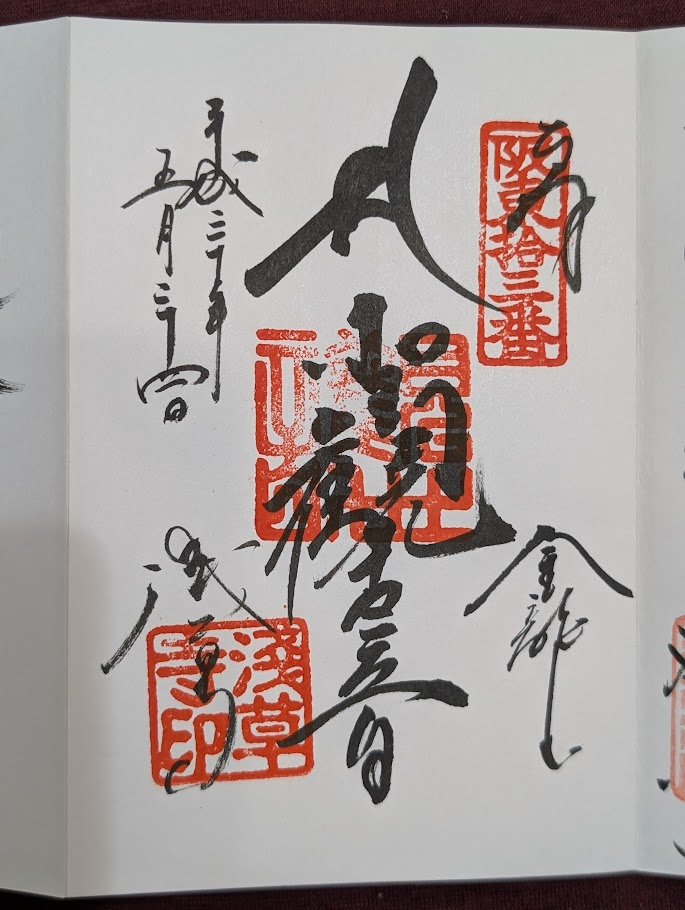 奉拝
阪東拾三番
聖観世音
金龍山
平成三十年
五月二十四日
浅草寺
淺草寺印